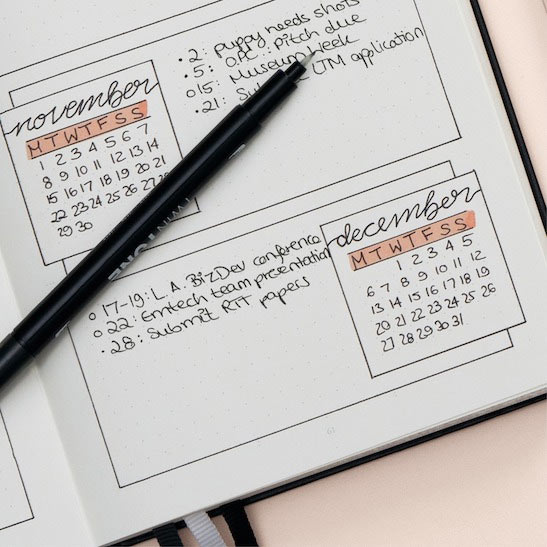 • 2: puppy needs shots
• 5: pitch due
o 15: Museum Week
• 21: application
november
M T W T F S S
1 2 3 4 5 6 7
8 9 10 11 12 13 14
15 16 17 18 19 20 21
22 23 24 25 26 27
29 30
TWINTONE
o 17-19: L.A. BizDev conference
o 22: Emtech team presentation
• 28: Submit papers
december
M T W T F S S
1 2 3 4 5
6 7 8 9 10 11 12
13 14 15 16 17 18 19
20 21 22 23 24 25 26
27 28 29 30 31